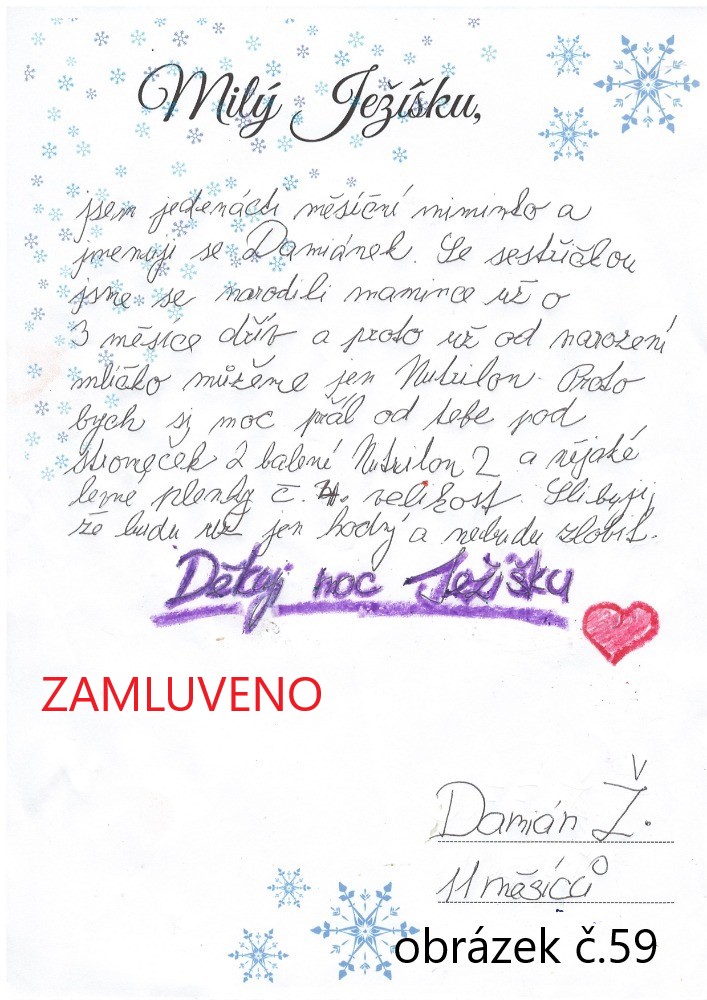 Milý Ježíšku,
jsem jedenácti měsíční miminko a
jmenuji se Damiánek. Se sestřičkou
jsme se narodili mamince už o
3 měsíce dřív a proto už od narození
mlíčko můžeme jen Nutrilon. Proto
bych si moc přál od tebe pod
stromeček 2 balení Nutrilon 2 a nějaké
plenky č. 4. velikost. Slibuji,
že budu už jen hodný a nebudu zlobit.
Děkuji moc Ježíšku
ZAMLUVENO
Damián Ž.
11 měsíců
obrázek č.59